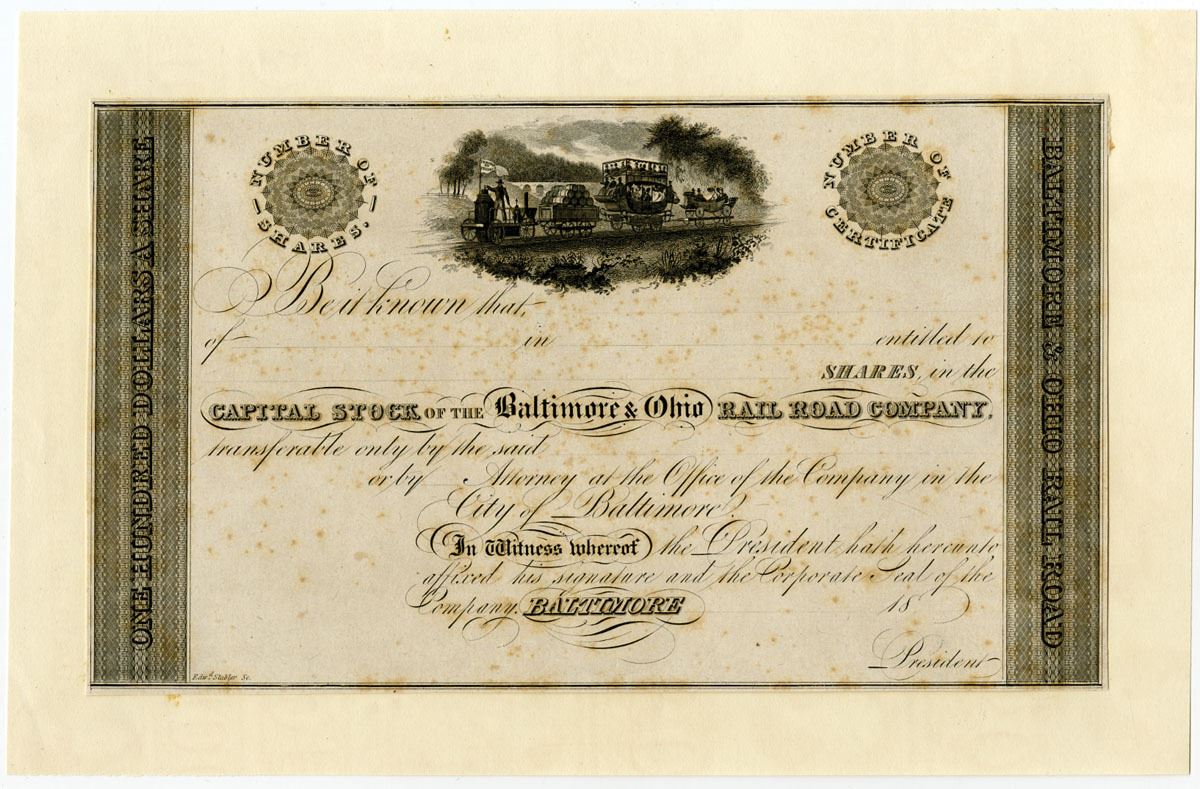 NUMBER OF
SHARES.
NUMBER OF
CERTIFICATE
ONE HUNDRED DOLLARS A SHARE
BALTIMORE & OHIO RAIL ROAD
Be it known that,
of in entitled to
SHARES, in the
CAPITAL STOCK OF THE Baltimore & Ohio RAIL ROAD COMPANY,
transferable only by the said
or by Attorney at the Office of the Company in the
City of Baltimore.
In Witness whereof the President hath hereunto
affixed his signature and the Corporate Seal of the
Company. BALTIMORE 18
President
Edwd. Stabler Sc.